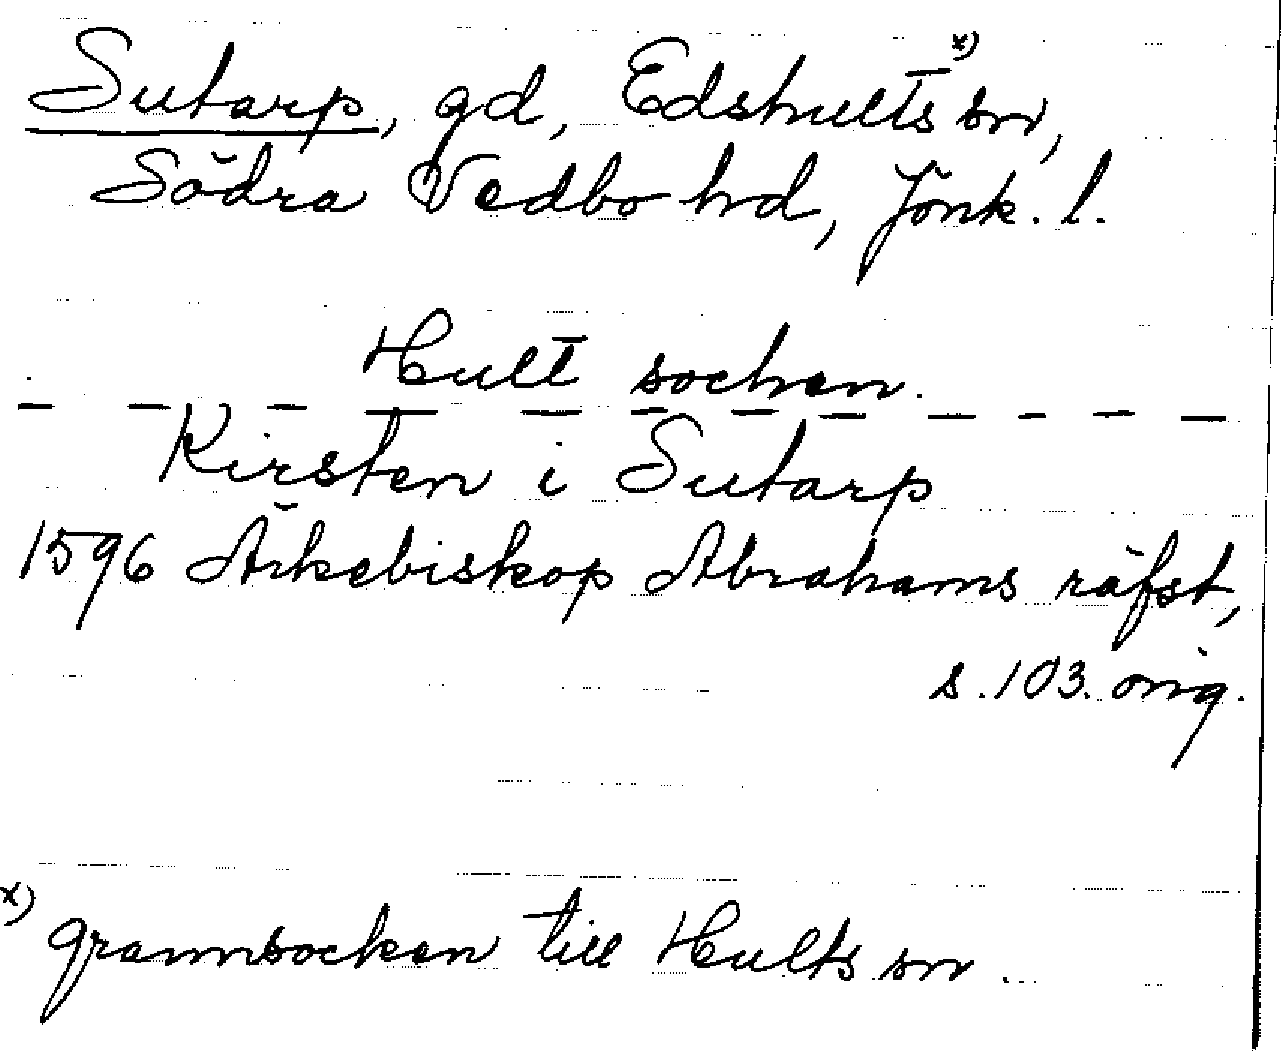 Sutarp, gd, Edshults x) sn,
Södra Vedbo hd, Jönk. l.
Hult sochen.
— — — — — — — — — — — —
Kirsten i Sutarp
1596 Ärkebiskop Abrahams räfst,
s. 103. orig.
x) grannsocken till Hults sn.